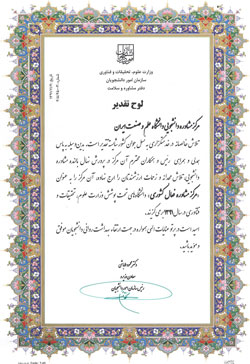 وزارت علوم، تحقیقات و فناوری
سازمان امور دانشجویان
دفتر مشاوره و سلامت
لوح تقدیر
مرکز مشاوره دانشجویی دانشگاه علم و صنعت ایران
تلاش خالصانه و خدمتگزاری به نسل جوان کشور شایسته تقدیر است. بدین وسیله به پاس
همدلی و همراهی رئیس و همکاران محترم آن مرکز در پرورش
دانشجویی، تلاش مجدانه و زحمات ارزشمندتان را ارج نهاده و آن مرکز را به عنوان
«مرکز مشاوره فعال کشوری» دانشگاه‌های تحت پوشش وزارت علوم، تحقیقات و
فناوری در سال ۱۳۹۶ معرفی می‌کند.
امید است در پرتو عنایات الهی همواره در جهت ارتقاء بهداشت روانی دانشجویان موفق
و موید باشید.
معاون وزیر
و رئیس سازمان امور دانشجویان